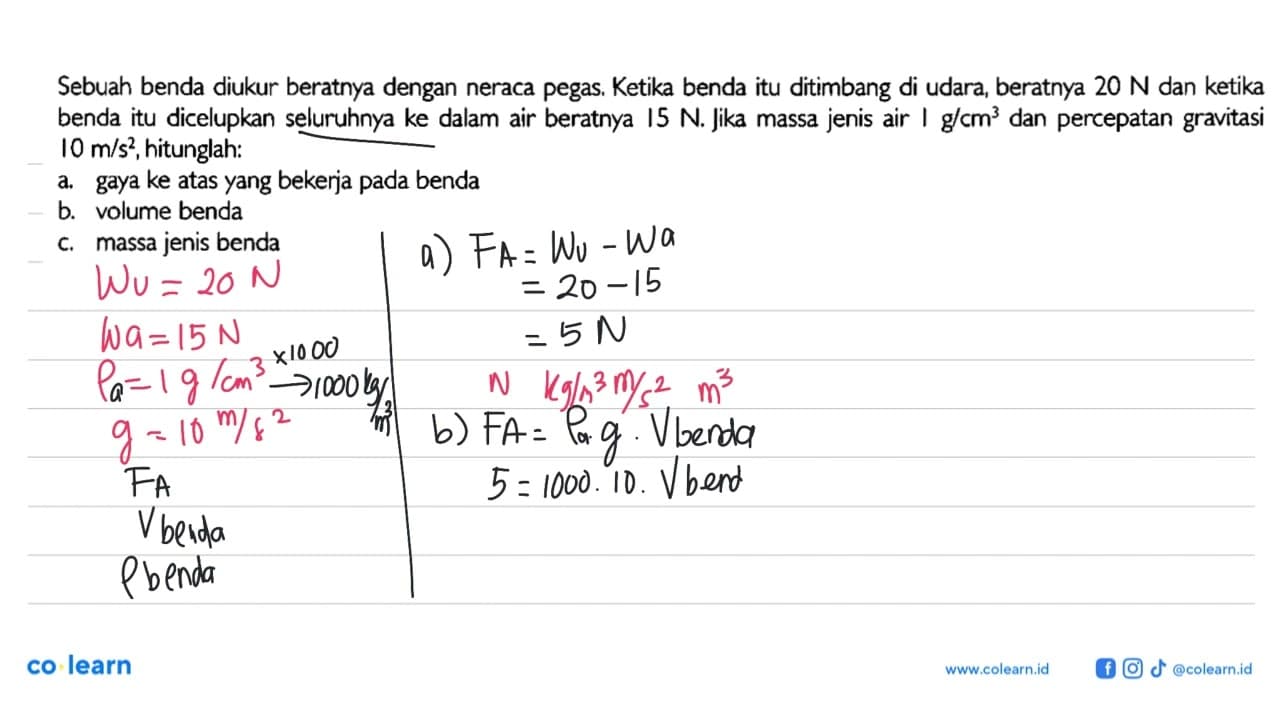 Sebuah benda diukur beratnya dengan neraca pegas. Ketika benda itu ditimbang di udara, beratnya 20 N dan ketika
benda itu dicelupkan seluruhnya ke dalam air beratnya 15 N. Jika massa jenis air 1 g/cm³ dan percepatan gravitasi
10 m/s², hitunglah:
a. gaya ke atas yang bekerja pada benda
b. volume benda
c. massa jenis benda
Wu = 20 N
Wa = 15 N
ρa = 1 g/cm³ ×1000 → 1000 kg/m³
g = 10 m/s²
FA
V benda
ρ benda
a) FA = Wu - Wa
= 20 - 15
= 5 N
N kg/m³ m/s² m³
b) FA = ρa. g . V benda
5 = 1000. 10. V bend
co·learn
www.colearn.id @colearn.id